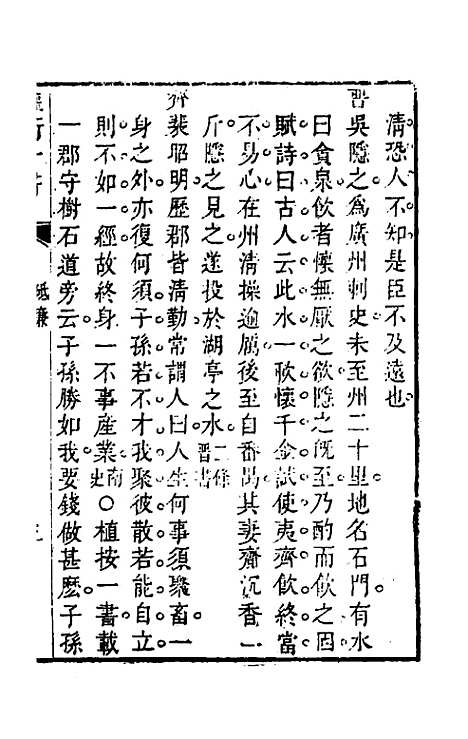 清恐人不知是臣不及遠也
晉吳隱之爲廣州刺史未至州二十里地名石門有水
曰貪泉飲者懷無厭之欲隱之既至乃酌而飲之因
賦詩曰古人云此水一歃懷千金試使夷齊飲終當
不易心在州清操逾厲後至自番禺其妻齎沉香一
斤隱之見之遂投於湖亭之水二條晉書
齊裴昭明歷郡皆清勤常謂人曰人生何事須聚畜一
身之外亦復何須子孫若不才我聚彼散若能自立
則不如一經故終身一不事產業南史○植按一書載
一郡守樹石道旁云子孫勝如我要錢做甚麽子孫